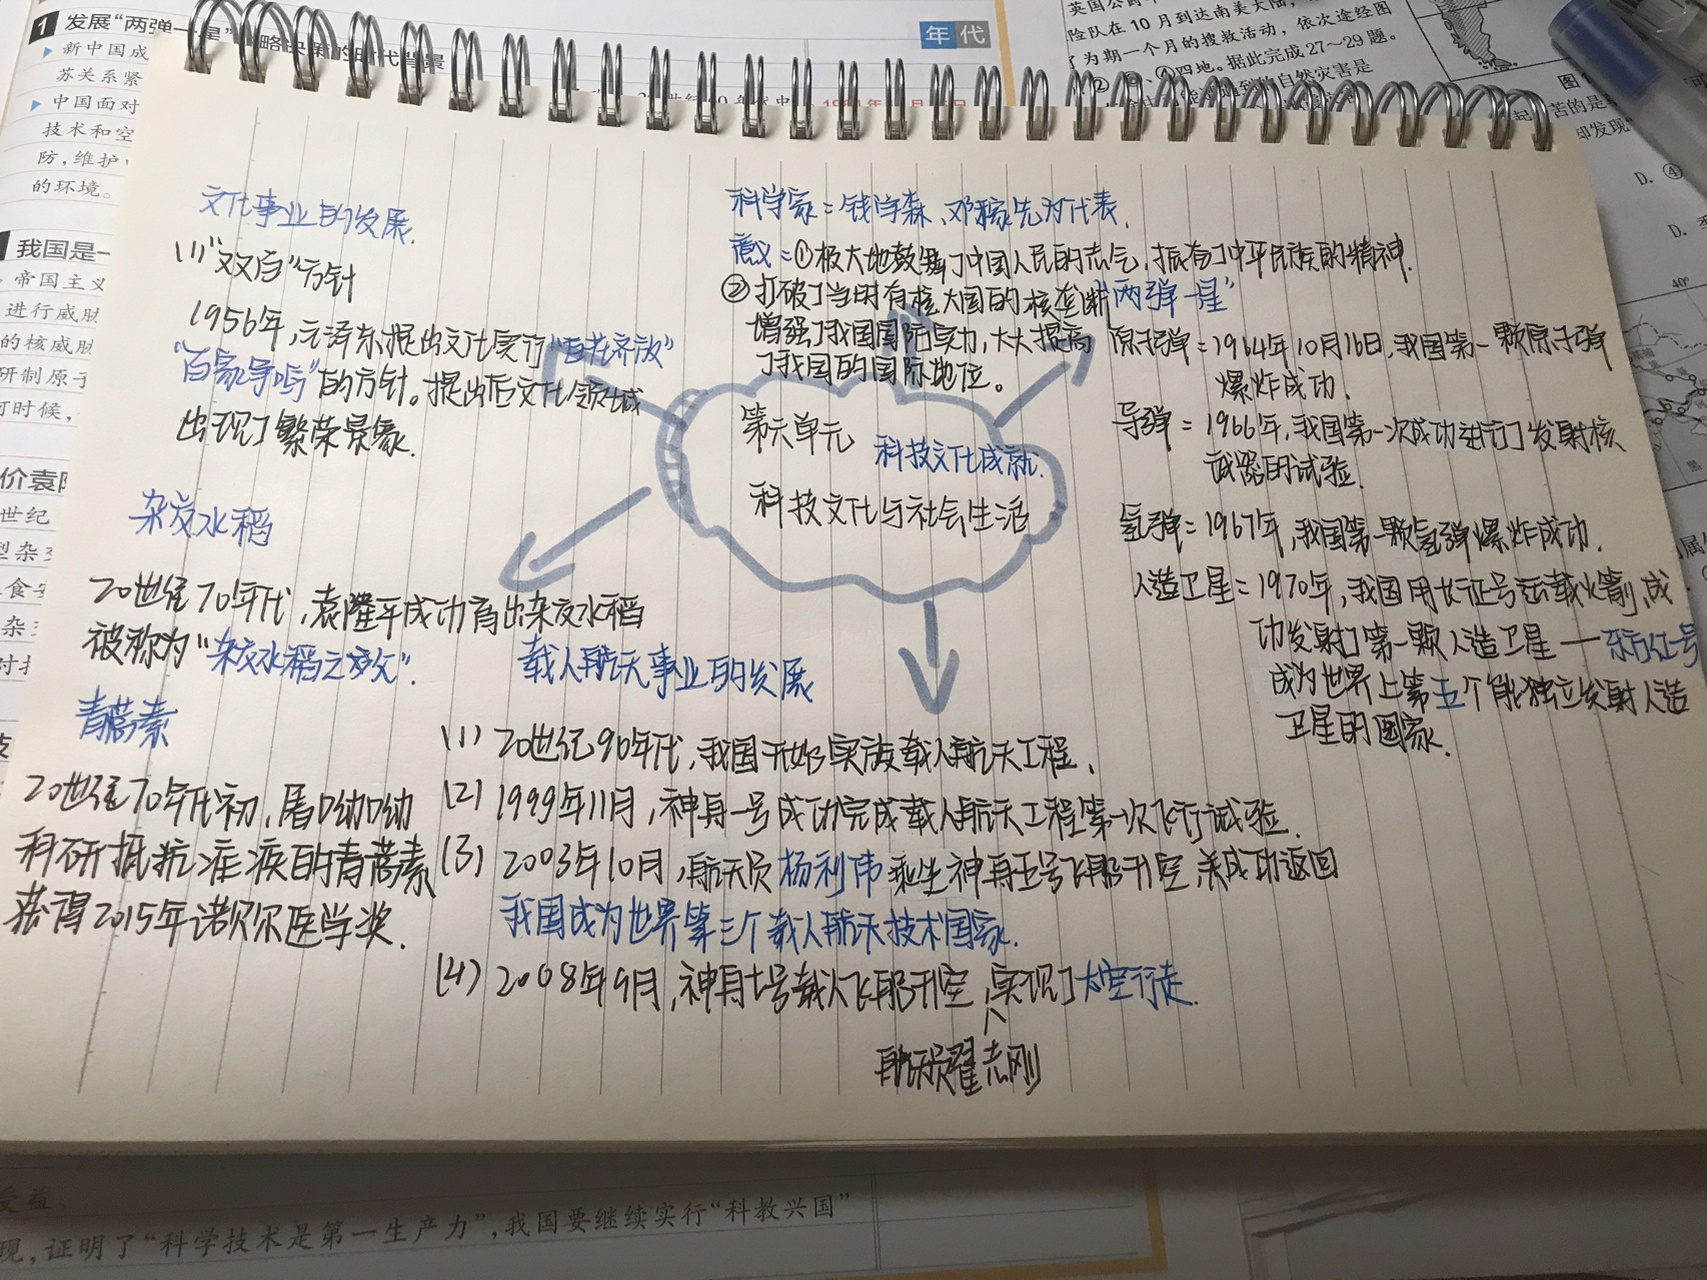 1 发展“两弹一星”
年代
新中国成
苏关系紧
中国面对
技术和空
防,维护
的环境。
我国是一
帝国主义
进行威胁
的核威胁
研制原子
可时候,
价袁隆
世纪
型杂交
英国公
险队在10月到达南美大陆,
为期一个月的搜救活动,依次途经图
四地。据此完成27~29题。
自然灾害是
D. ④
D.
40°
文化事业的发展.
(1)“双百”方针
1956年,毛泽东提出文化实行“百花齐放”
“百家争鸣”的方针。提出后文化领域
出现了繁荣景象.
杂交水稻
20世纪70年代,袁隆平成功育出杂交水稻
被称为“杂交水稻之父”.
青蒿素
20世纪70年代初,屠呦呦
科研抵抗疟疾的青蒿素
获得2015年诺贝尔医学奖.
科学家:钱学森、邓稼先为代表.
意义:①极大地鼓舞了中国人民的志气,振奋了中华民族的精神.
②打破了当时有核大国的核垄断
增强了我国国防实力,大大提高
了我国的国际地位。
第六单元 科技文化成就.
科技文化与社会生活
“两弹一星”
原子弹:1964年10月16日,我国第一颗原子弹
爆炸成功.
导弹:1966年,我国第一次成功进行了发射核
武器的试验.
氢弹:1967年,我国第一颗氢弹爆炸成功.
人造卫星:1970年,我国用长征号运载火箭,成
功发射了第一颗人造卫星——东方红一号
成为世界上第五个能独立发射人造
卫星的国家.
载人航天事业的发展
(1) 20世纪90年代,我国开始实施载人航天工程.
(2) 1999年11月,神舟一号成功完成载人航天工程第一次飞行试验.
(3) 2003年10月,航天员杨利伟乘坐神舟五号飞船升空,并成功返回
我国成为世界第三个载人航天技术国家.
(4) 2008年9月,神舟七号载人飞船升空,实现了太空行走.
航天员翟志刚
受益
现,证明了“科学技术是第一生产力”,我国要继续实行“科教兴国”